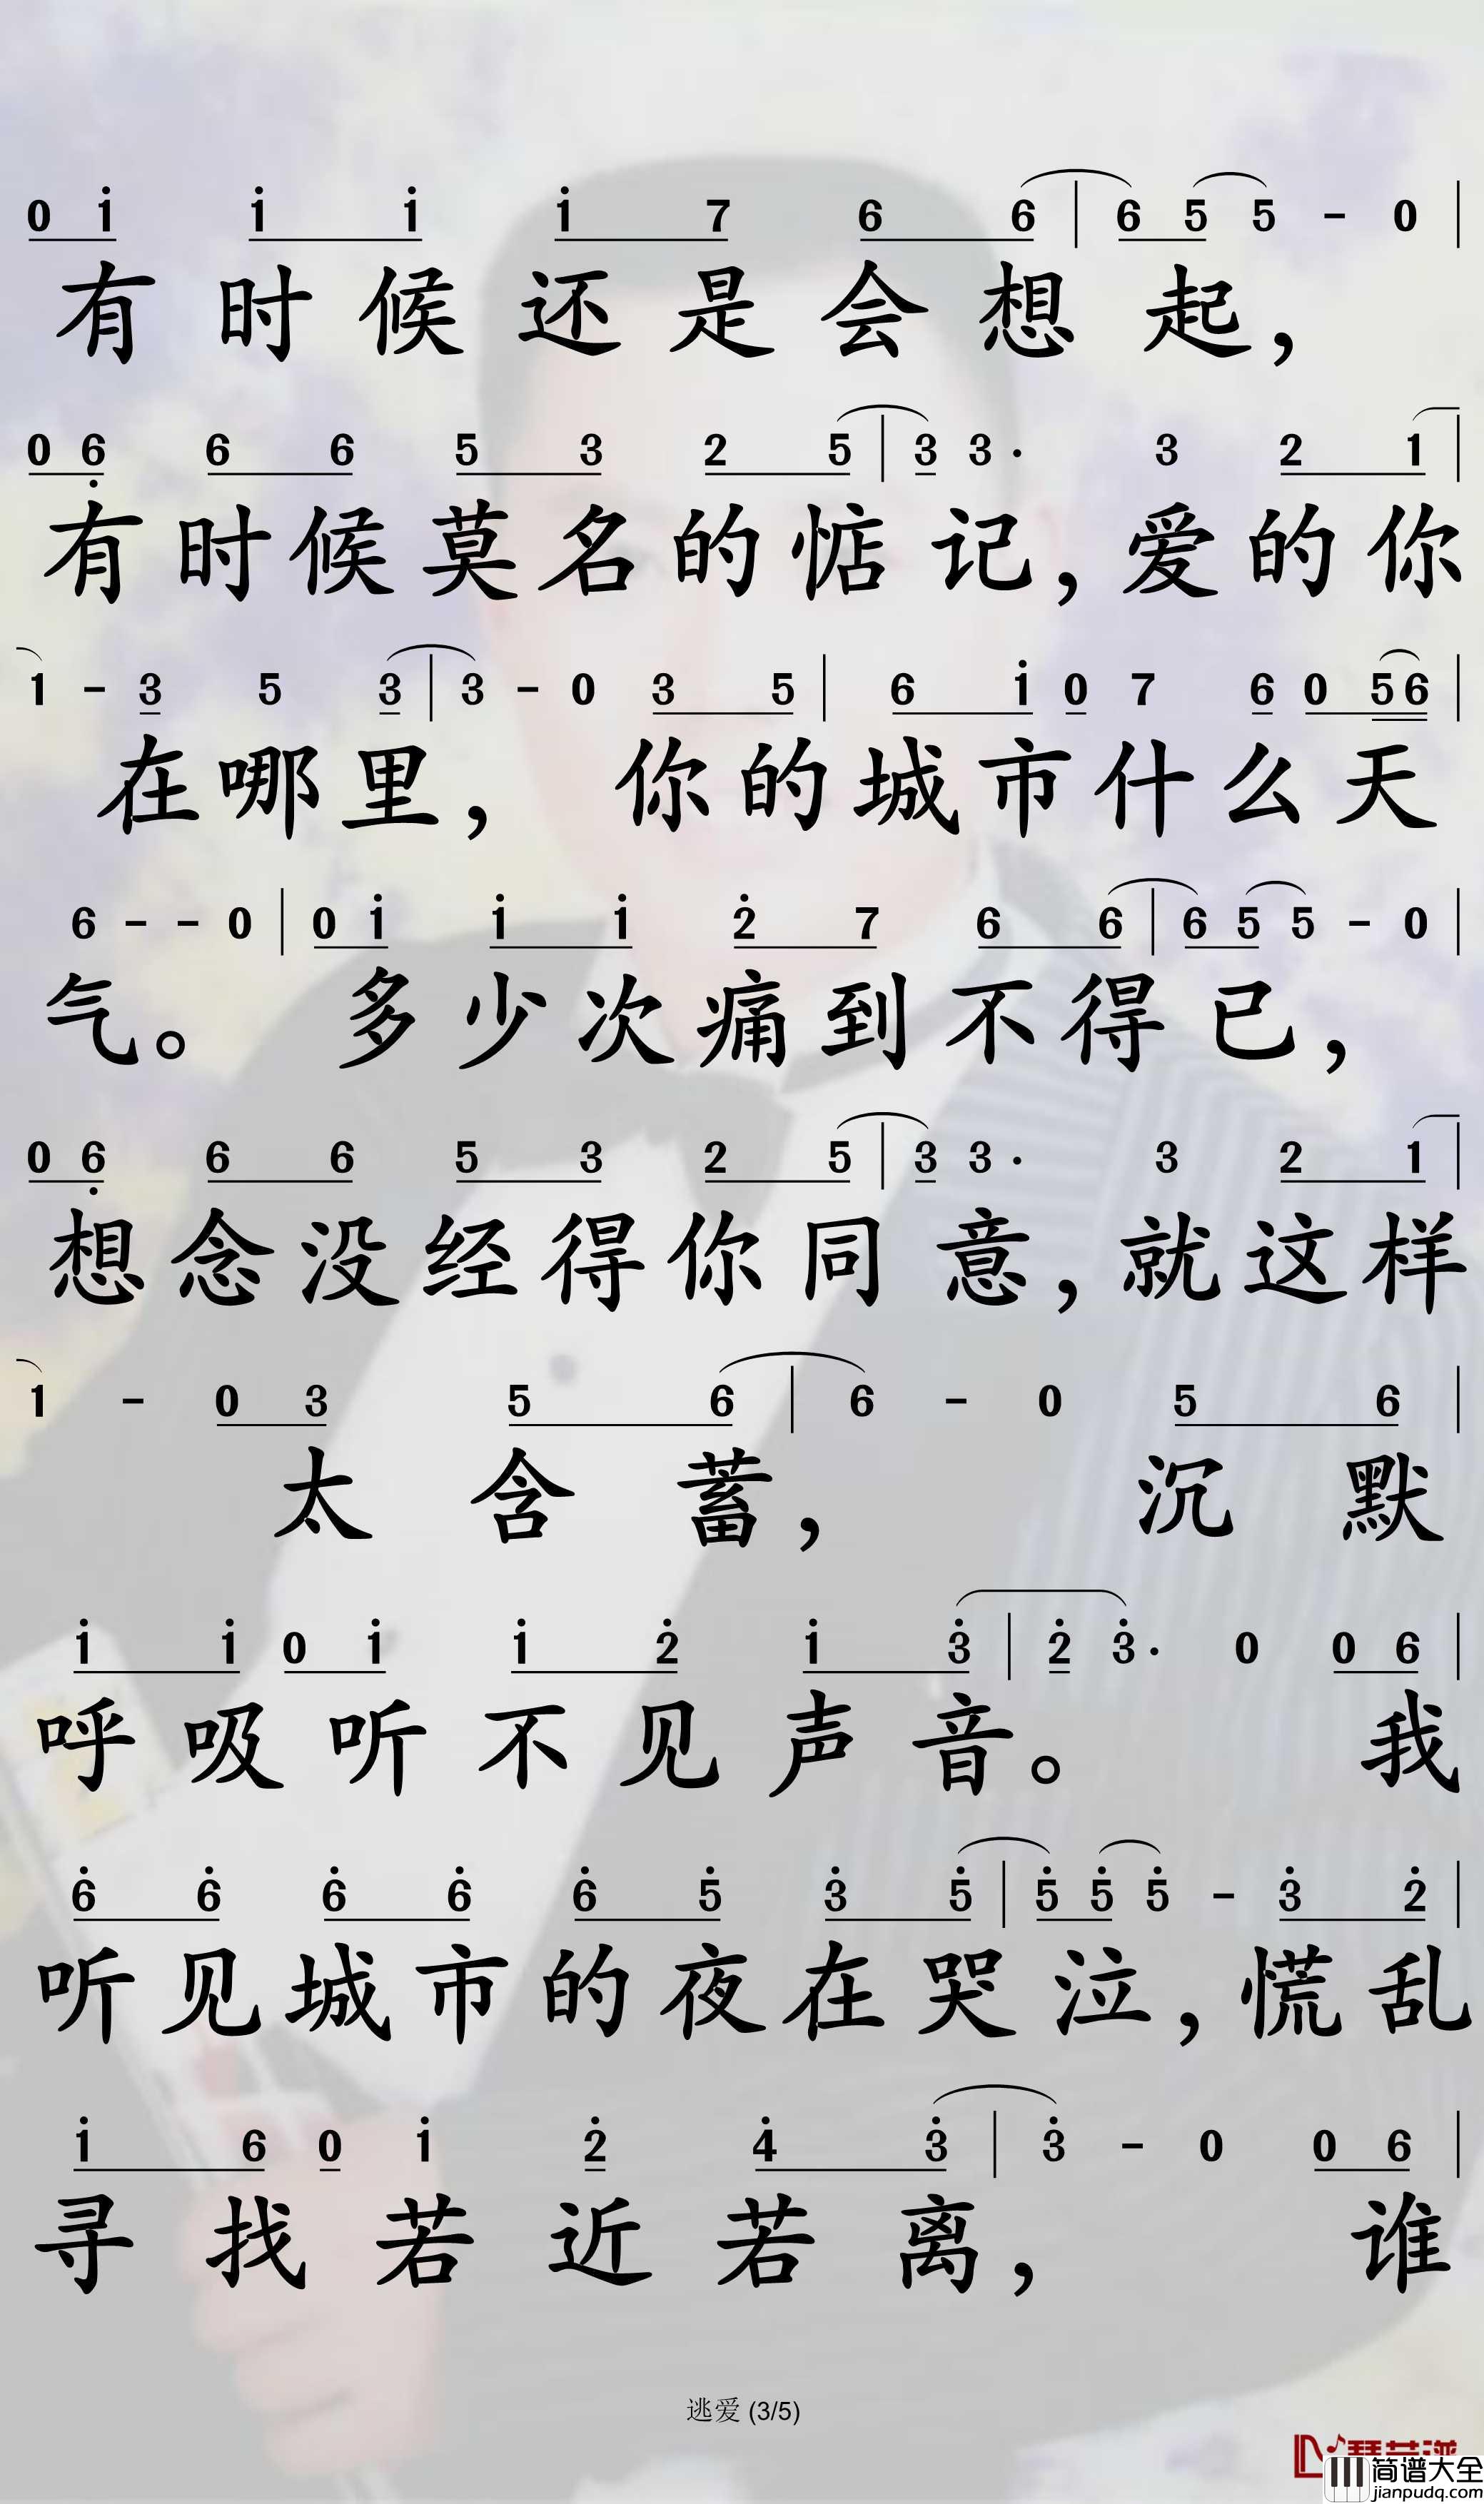 0 1 1 1 1 7 6 6 | 6 5 5 - 0 |
有时候还是会想起，
0 6 6 6 5 3 2 5 | 3 3· 3 2 1 |
有时候莫名的惦记，爱的你
1 - 3 5 3 | 3 - 0 3 5 | 6 1 0 7 6 0 5 6 |
在哪里，你的城市什么天
6 - - 0 | 0 1 1 1 2 7 6 6 | 6 5 5 - 0 |
气。多少次痛到不得已，
0 6 6 6 5 3 2 5 | 3 3· 3 2 1 |
想念没经得你同意，就这样
1 - 0 3 5 6 | 6 - 0 5 6 |
太含蓄，沉默
1 1 0 1 1 2 1 3 | 2 3· 0 0 6 |
呼吸听不见声音。我
6 6 6 6 6 5 3 5 | 5 5 5 - 3 2 |
听见城市的夜在哭泣，慌乱
1 6 0 1 2 4 3 | 3 - 0 0 6 |
寻找若近若离，谁
逃爱 (3/5)
简谱大全
jianpudq.com